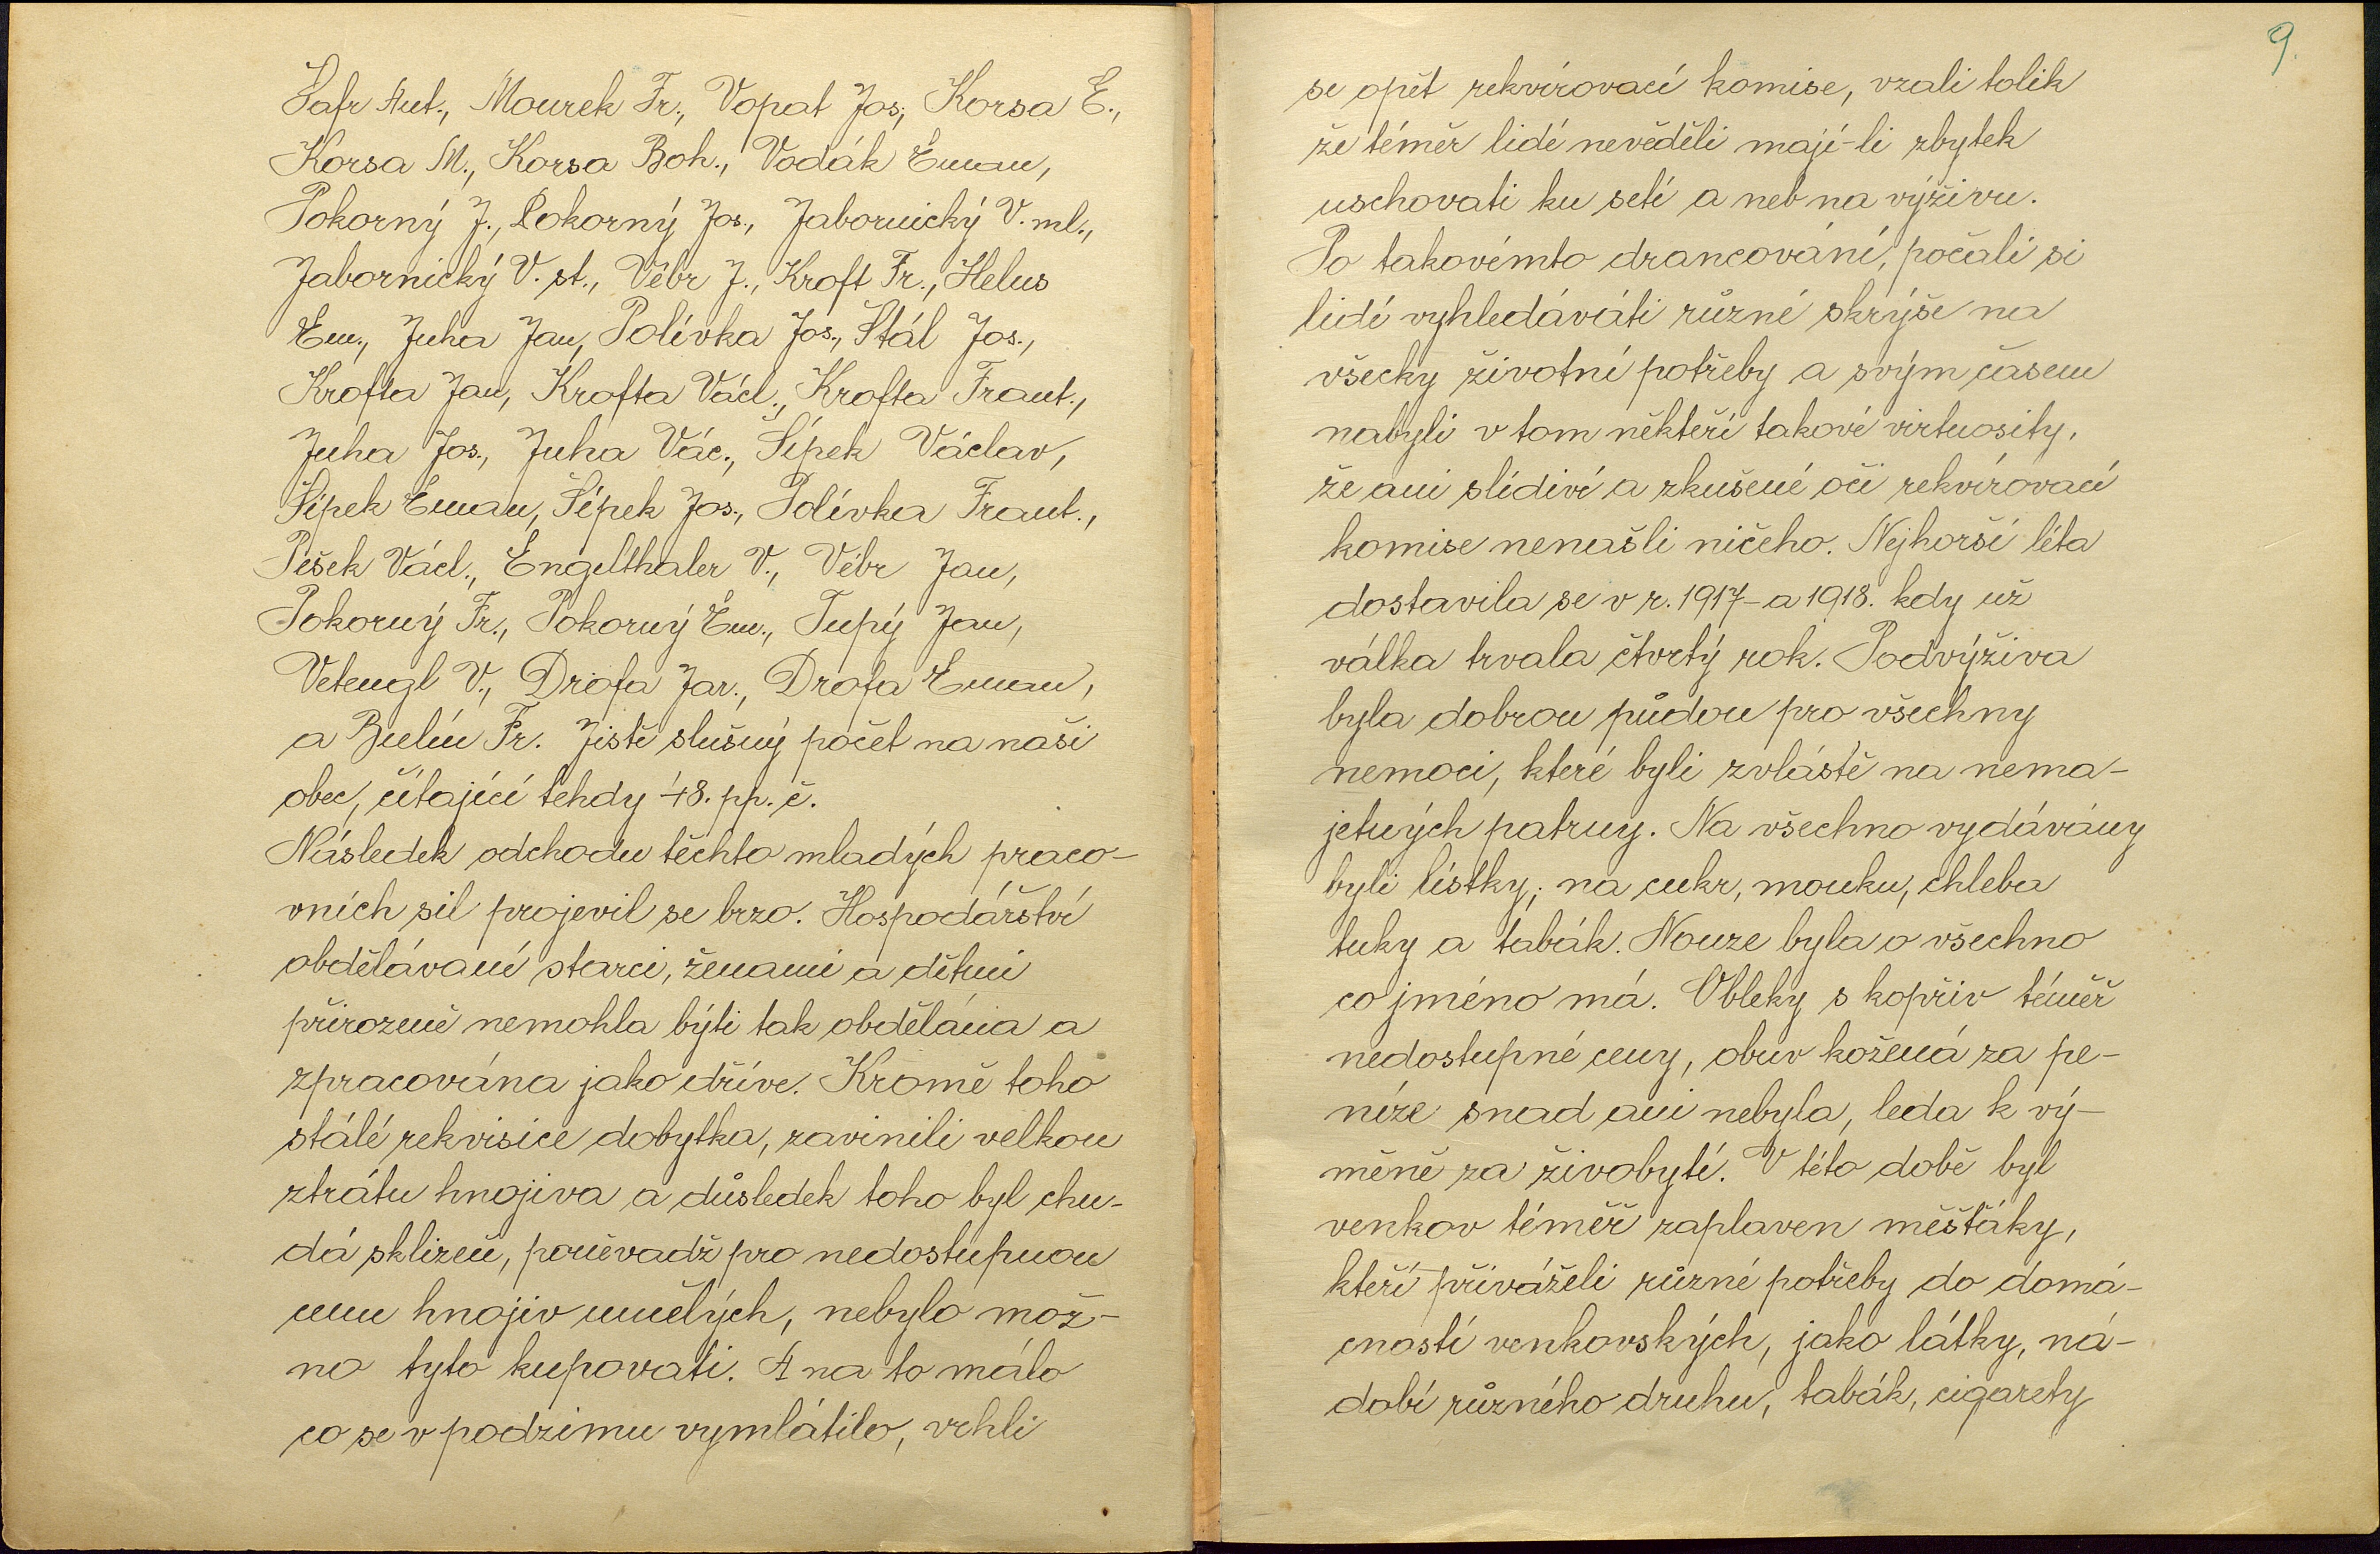 Šafr Ant., Mourek Fr., Vopat Jos., Korsa E.,
Korsa M., Korsa Boh., Vodák Eman,
Pokorný J., Pokorný Jos., Jabornický V. ml.,
Jabornický V. st., Vébr J., Kroft Fr., Helus
Em., Juha Jan, Polívka Jos., Stál Jos.,
Krofta Jan, Krofta Václ., Krofta Frant.,
Juha Jos., Juha Vác., Šípek Václav,
Šípek Eman, Šípek Jos., Polívka Frant.,
Pešek Václ., Engelthaler V., Vébr Jan,
Pokorný Fr., Pokorný Em., Tupý Jan,
Vetengl V., Drofa Jar., Drofa Eman,
a Fr. Jistě slušný počet na naši
obec, čítající tehdy 48. pp. č.
Následek odchodu těchto mladých praco-
vních sil projevil se brzo. Hospodářství
obdělávaní starci, ženami a dětmi
přirozeně nemohla býti tak obdělána a
zpracována jako dříve. Kromě toho
stálé rekvisice dobytka, zavinili velkou
ztrátu hnojiva a důsledek toho byl chu-
dá sklizeň, poněvadž pro nedostupnou
cenu hnojiv umělých, nebylo mož-
no tyto kupovati. A na to málo
co se v podzimu vymlátilo, vrhli
9.
se opět rekvírovací komise, vzali tolik
že téměr lidé nevěděli mají-li zbytek
uschovati ku setí a neb na výživu.
Po takovémto drancování, počali si
lidé vyhledáváti různé skrýše na
všecky životní potřeby a svým časem
nabyli v tom někteří takové virtuosity,
že ani slídiví a zkušené oči rekvírovací
komise nenašli ničeho. Nejhorší léta
dostavila se v r. 1917- a 1918. kdy už
válka trvala čtvrtý rok. Podvýživa
byla dobrou půdou pro všechny
nemoci, které byli zvláště na nema-
jetných patrny. Na všechno vydávány
byli lístky; na cukr, mouku, chleba
tuky a tabák. Nouze byla o všechno
co jméno má. Obleky s kopřiv téměř
nedostupné ceny, obuv kožená za pe-
níze snad ani nebyla, leda k vý-
měně za živobytí. V této době byl
venkov téměř zaplaven měšťáky,
kteří přiváželi různé potřeby do domá-
cností venkovských, jako látky, ná-
dobí různého druhu, tabák, cigarety